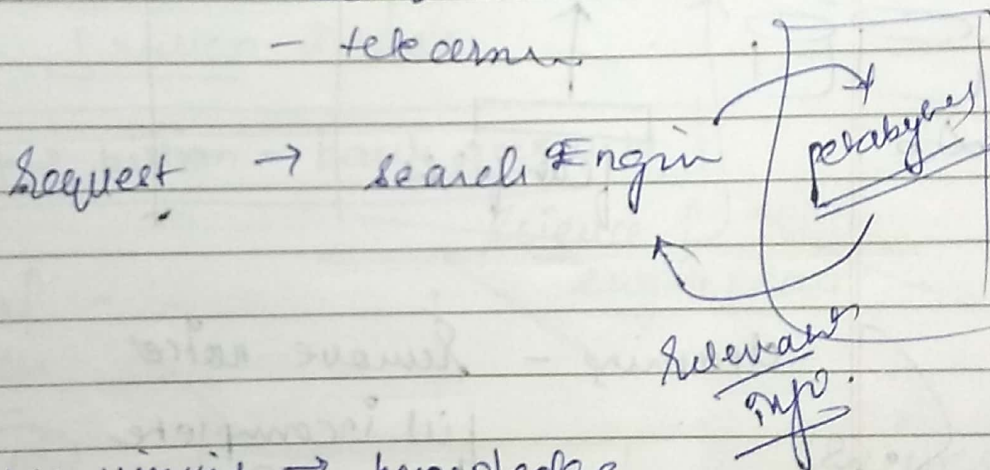 - telecomm
Request → Search Engin
petabytes
Relevant
info.
→ knowledge